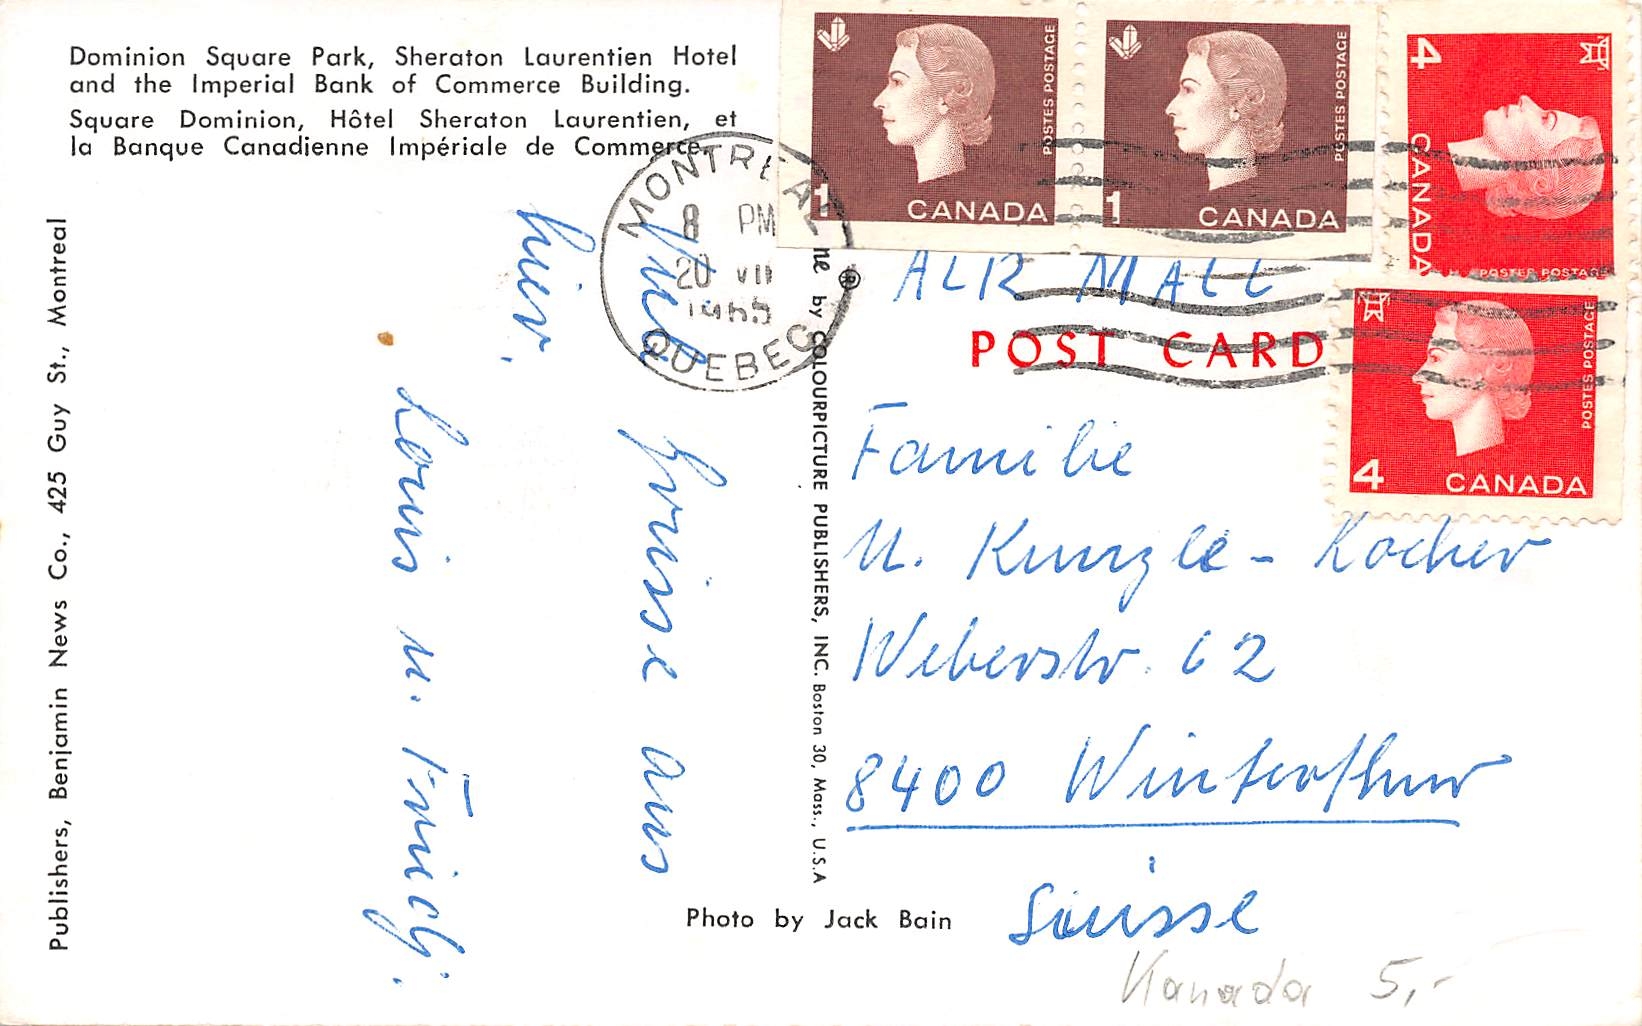 Dominion Square Park, Sheraton Laurentien Hotel
and the Imperial Bank of Commerce Building.
Square Dominion, Hôtel Sheraton Laurentien, et
la Banque Canadienne Impériale de Commerce.
Publishers, Benjamin News Co., 425 Guy St., Montreal
MONTREAL
8 PM
20 VII
1965
QUEBEC
Grüsse aus
hier.
Louis u. Trudy.
by COLOURPICTURE PUBLISHERS, INC. Boston 30, Mass., U.S.A
®
Photo by Jack Bain
POSTES POSTAGE
1 CANADA
POSTES POSTAGE
1 CANADA
POSTES POSTAGE
4 CANADA
POSTES POSTAGE
4 CANADA
AIR MAIL
POST CARD
Familie
U. Kunzle - Kocher
Weberstr. 62
8400 Winterthur
Suisse
Kanada 5,-